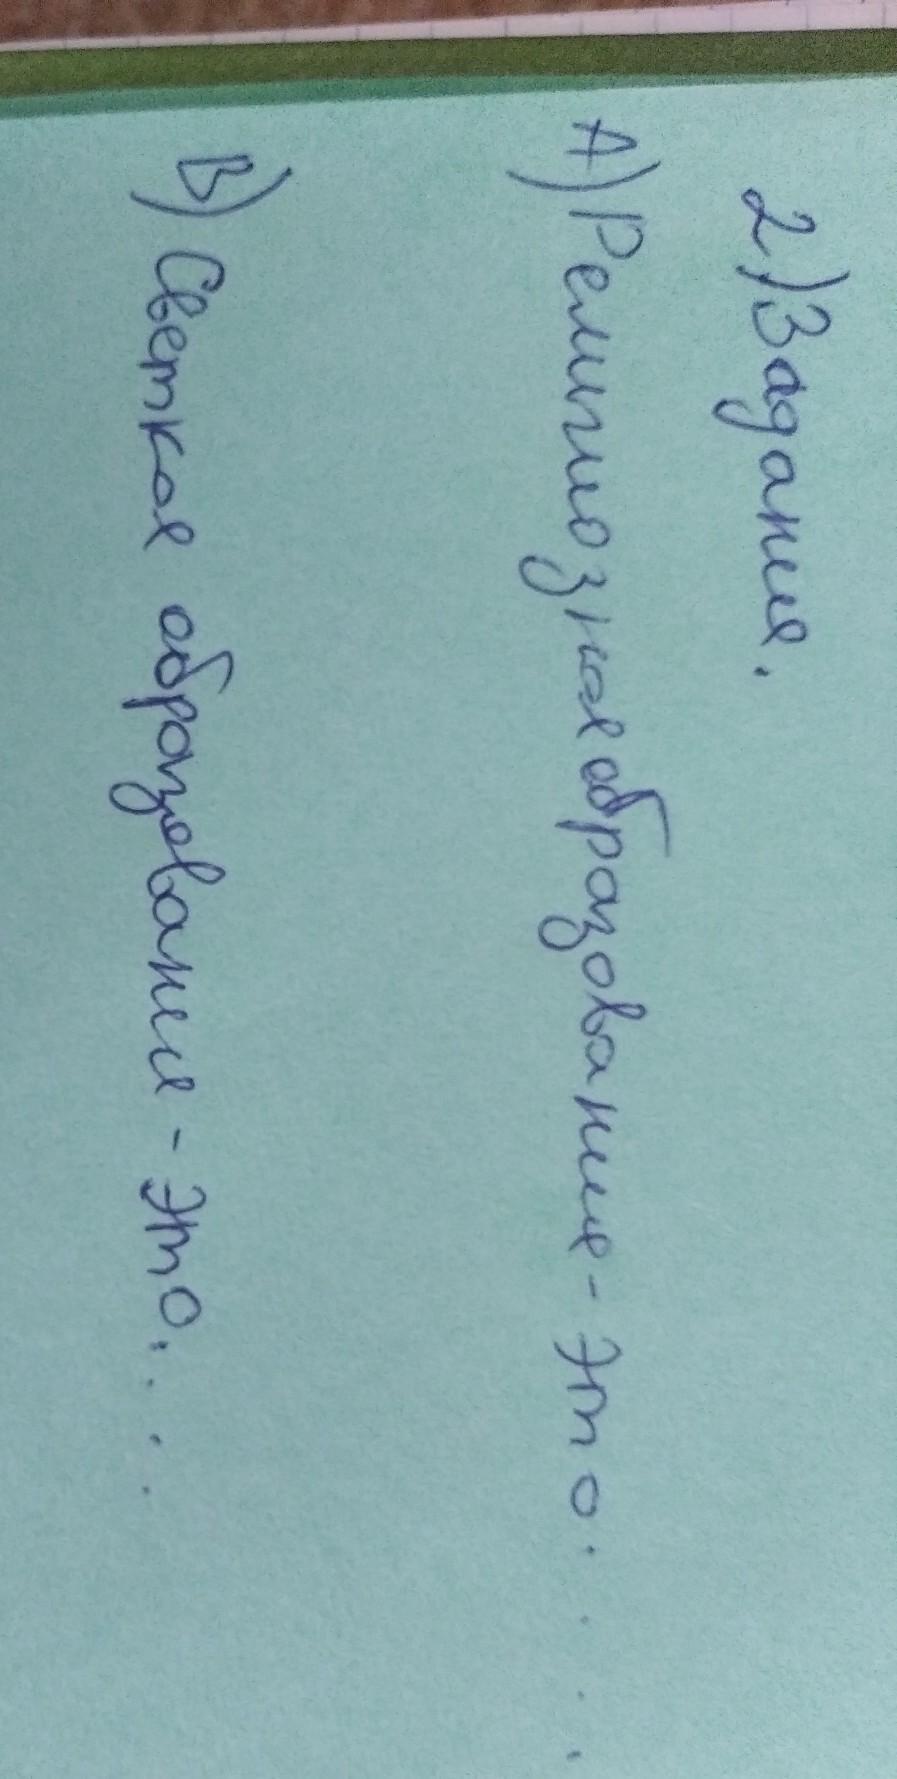 2) Задание.
А) Религиозное образование - это....
В) Светкое образование - это....